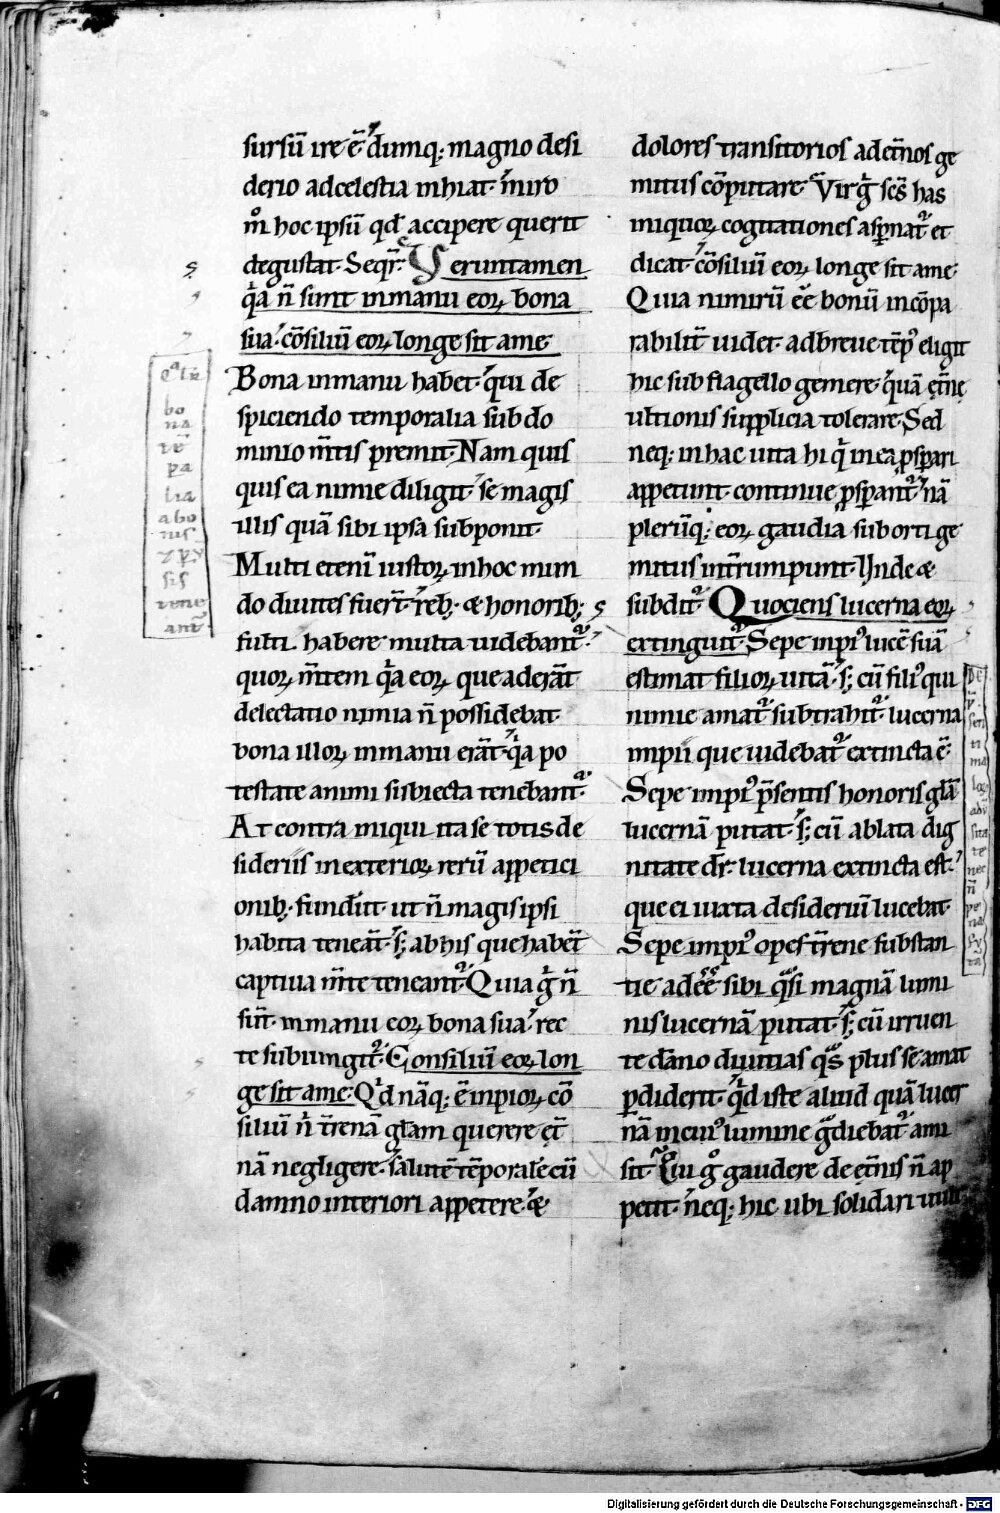 sursū ire ē· dumq; magno desi
derio ad celestia inhiat· miro
m̊ hoc ipsū qd̄ accipere querit
degustat· Seqr̄· Veruntamen
q̇a n̄ sunt in manu eoꝝ bona
sua· cōsiliū eoꝝ longe sit a me·
Bona in manu habet· qui de
spiciendo temporalia sub do
minio m̄tis premit· Nam quis
quis ea nimie diligit· se magis
illis quā sibi ipsa subponit·
Multi etenī iustoꝝ in hoc mun
do diuites fuer̄t· reb; & honorib;
fulti· habere multa uidebant᷑·
quoꝝ m̄tem q̇a eoꝝ que aderāt
delectatio nimia n̄ possidebat·
bona illoꝝ in manu erāt· q̇a po
testate animi subiecta tenebant᷑·
At contra iniqui ita se totis de
sideriis in exterioꝝ rerū appetici
onib; fundūt· ut n̄ magis ipsi
habita teneāt· s; ab his que habēt
captiua m̄te teneant᷑· Quia g̊ n̄
sūt· in manu eoꝝ bona sua· rec
te subiungit᷑· Consiliū eoꝝ lon
ge sit a me· Qd̄ nāq; ē inpioꝝ cō
siliū n̄ t̄renā gl̄am querere et̄
nā negligere· salutē tēporalē cū
damno interiori appetere· &
dolores transitorios ad et̄nos ge
mitus cōputare· Virg̊ scs̄ has
iniquoꝝ cogitationes asp̄nat᷑ et
dicat· cōsiliū eoꝝ longe sit a me·
Quia nimirū eē bonū incōpa
rabilit̄ uidet· ad breue tēp᷒ eligit
hic sub flagello gemere· quā et̄nę
ultionis supplicia tolerare· Sed
neq; in hac uita hi q̇ in ea ꝓsꝑari
appetunt· continue ꝓsꝑant᷑· nā
plerūq; eoꝝ gaudia suborti ge
mitus int̄rumpunt· Vnde &
subdit᷑· Quociens lucerna eoꝝ
extinguit᷑· Sepe inpi᷒ lucē suā
estimat filioꝝ uitā· s; cū fili᷒ qui
nimie amat᷑ subtrahit᷑· lucerna
impii que uidebat᷑ extincta ē·
Sepe impi᷒ p̄sentis honoris gl̄ā
lucernā putat· s; cū ablata dig
nitate dr̄· lucerna extincta est·
que ei iuxta desideriū lucebat·
Sepe impi᷒ opes t̄rene substan
tie adeē sibi qͣsi magnā lumi
nis lucernā putat· s; cū irruen
te dāno diuitias qͣs plus se amat
ꝑdiderit· q̇d iste aliud quā lucer
nā in cui᷒ lumine g̊diebat᷑ ami
sit· Qui g̊ gaudere de et̄nis n̄ ap
petit· neq; hic ubi solidari uult
bo
na
tē
pa
lia
a bo
nis